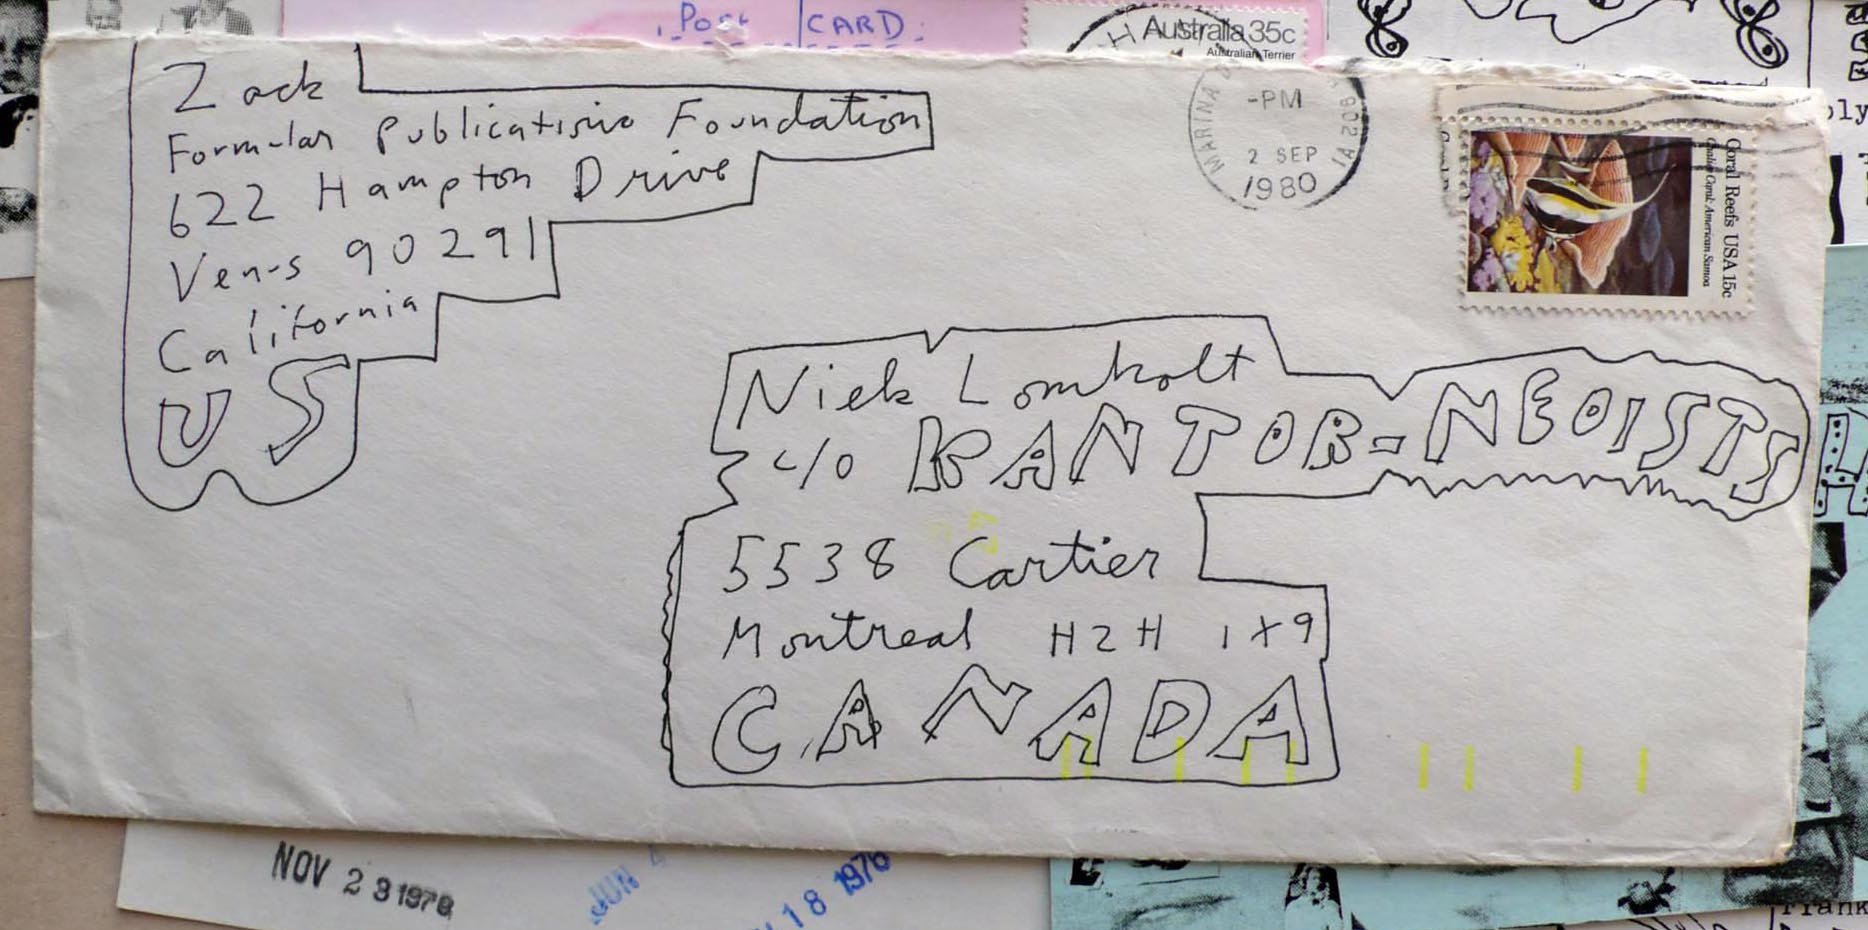 Post CARD.
Australia 35c
Australian Terrier
Zack
Formular Publications Foundation
622 Hampton Drive
Venus 90291
California
US
MARINA
-PM
2 SEP
1980
902
Coral Reefs USA 15c
Chalice Coral: American Samoa
Niels Lomholt
c/o KANTOR-NEOISTS
5538 Cartier
Montreal H2H 1X9
CANADA
NOV 23 1978
JUN 4
18 1976
Frank